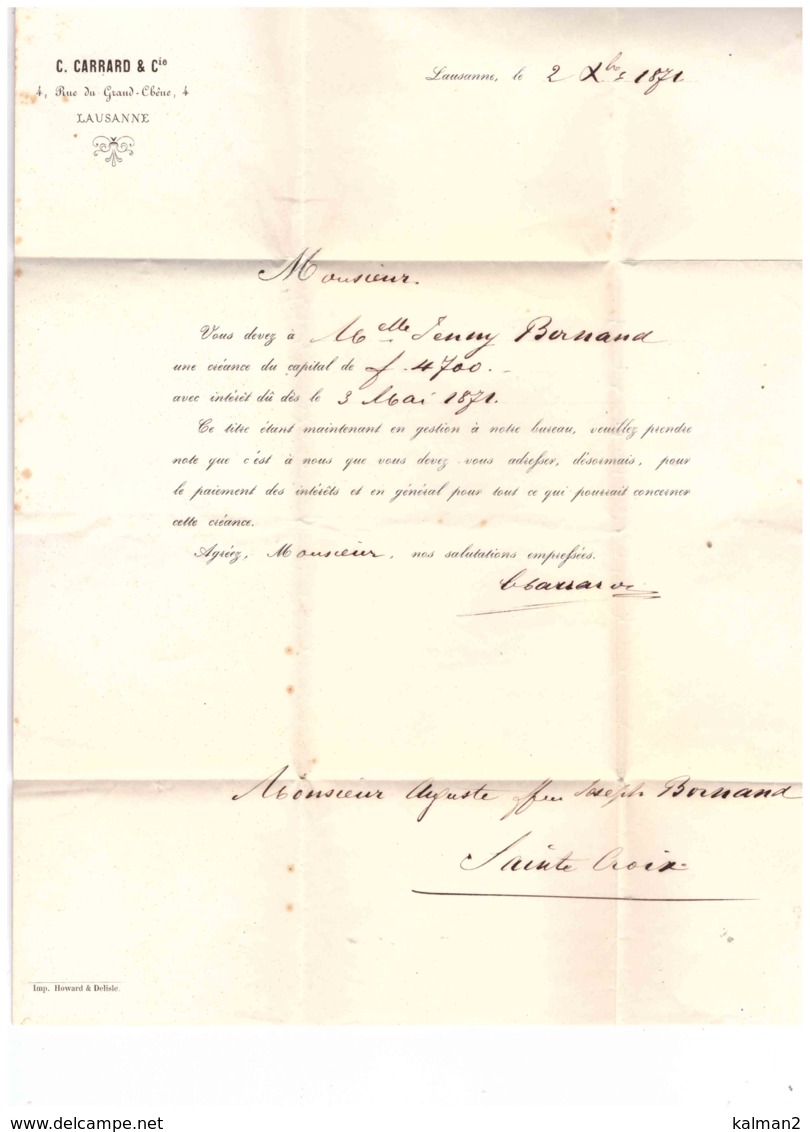 C. CARRARD & Cie
4, Rue du Grand-Chêne, 4
LAUSANNE
Lausanne, le 2 Xbre 1871
Monsieur.
Vous devez à Melle Jenny Bornand
une créance du capital de f. 4700.-
avec intérêt dû dès le 3 Mai 1871.
Ce titre étant maintenant en gestion à notre bureau, veuillez prendre
note que c'est à nous que vous devez vous adresser, désormais, pour
le paiement des intérêts et en général pour tout ce qui pourrait concerner
cette créance.
Agréez, Monsieur, nos salutations empressées.
Monsieur Auguste ffeu Joseph Bornand
Sainte Croix
Imp. Howard & Delisle.
delcampe.net
kalman2